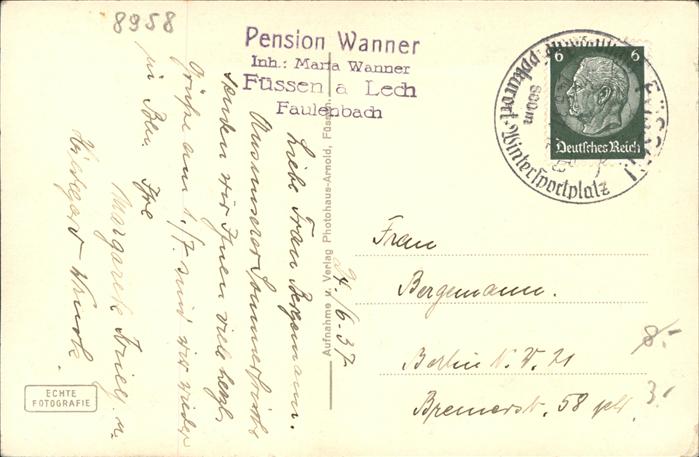 8958
Pension Wanner
Inh.: Maria Wanner
Füssen a Lech
Faulenbach
6 6
Deutsches Reich
FÜSSEN
800m
Kneippkurort · Wintersportplatz
24./6.37
Liebe Frau Bergemann.
Aus unserer Sommerfrische
senden wir Ihnen viele herzl.
Grüße am 1./7. sind wir wieder
in Bln. Ihre
Margarete u.
Hildegard
Aufnahme u. Verlag Photohaus-Arnold, Füssen
Frau
Bergemann.
Berlin N.W. 21
Bremerstr. 58 ptr.
8.-
3.-
ECHTE
FOTOGRAFIE